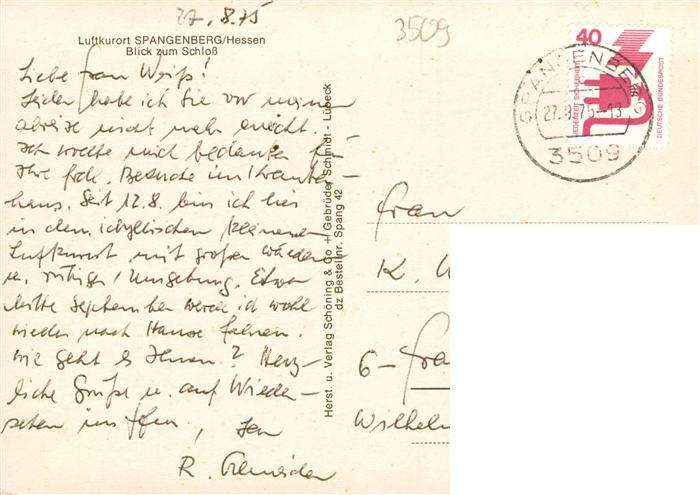 27.8.75
3509
Luftkurort SPANGENBERG/Hessen
Blick zum Schloß
Liebe Frau Weiß!
Leider habe ich Sie vor meiner
abreise nicht mehr erreicht.
Ich wollte mich bedanken für
Ihre frdl. Besuche im Kranken-
haus. Seit 12.8. bin ich hier
in dem idyllischen kleinen
Luftkurort mit großen Wäldern
u. ruhiger Umgebung. Etwa
Mitte September werde ich wohl
wieder nach Hause fahren.
Wie geht es Ihnen? Herz-
liche Grüße u. auf Wieder-
sehen in
R.
Herst. u. Verlag Schöning & Co + Gebrüder Schmidt - Lübeck
dz Bestellnr. Spang 42
40
JEDERZEIT SICHERHEIT
DEUTSCHE BUNDESPOST
SPANGENBERG
27.8.75-13
3509
Frau
K. W
6-Fra
Wilhelm